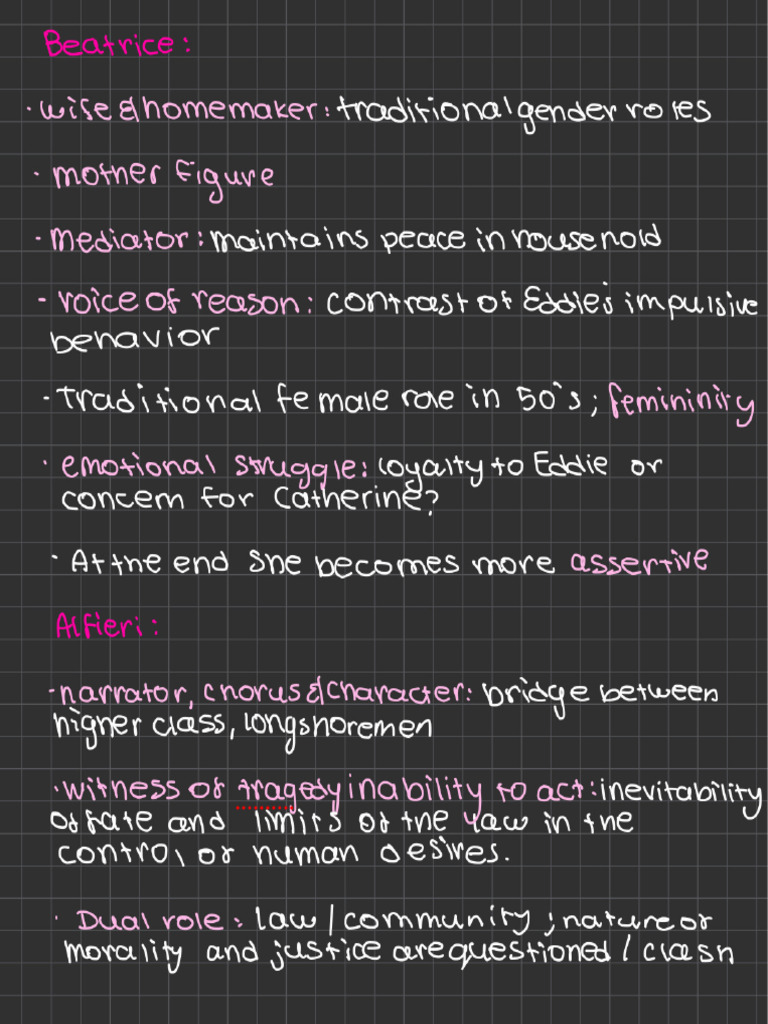 Beatrice:
· wife & homemaker: traditional gender roles
· mother figure
· Mediator: maintains peace in household
- voice of reason: contrast of Eddie's impulsive
behavior
· Traditional female role in 50's; femininity
· emotional struggle: loyalty to Eddie or
concern for Catherine?
· At the end she becomes more assertive
Alfieri:
· narrator, chorus & character: bridge between
higher class, longshoremen
· witness of tragedy inability to act: inevitability
of fate and limits of the law in the
control of human desires.
· Dual role: law / community ; nature of
morality and justice are questioned / clash